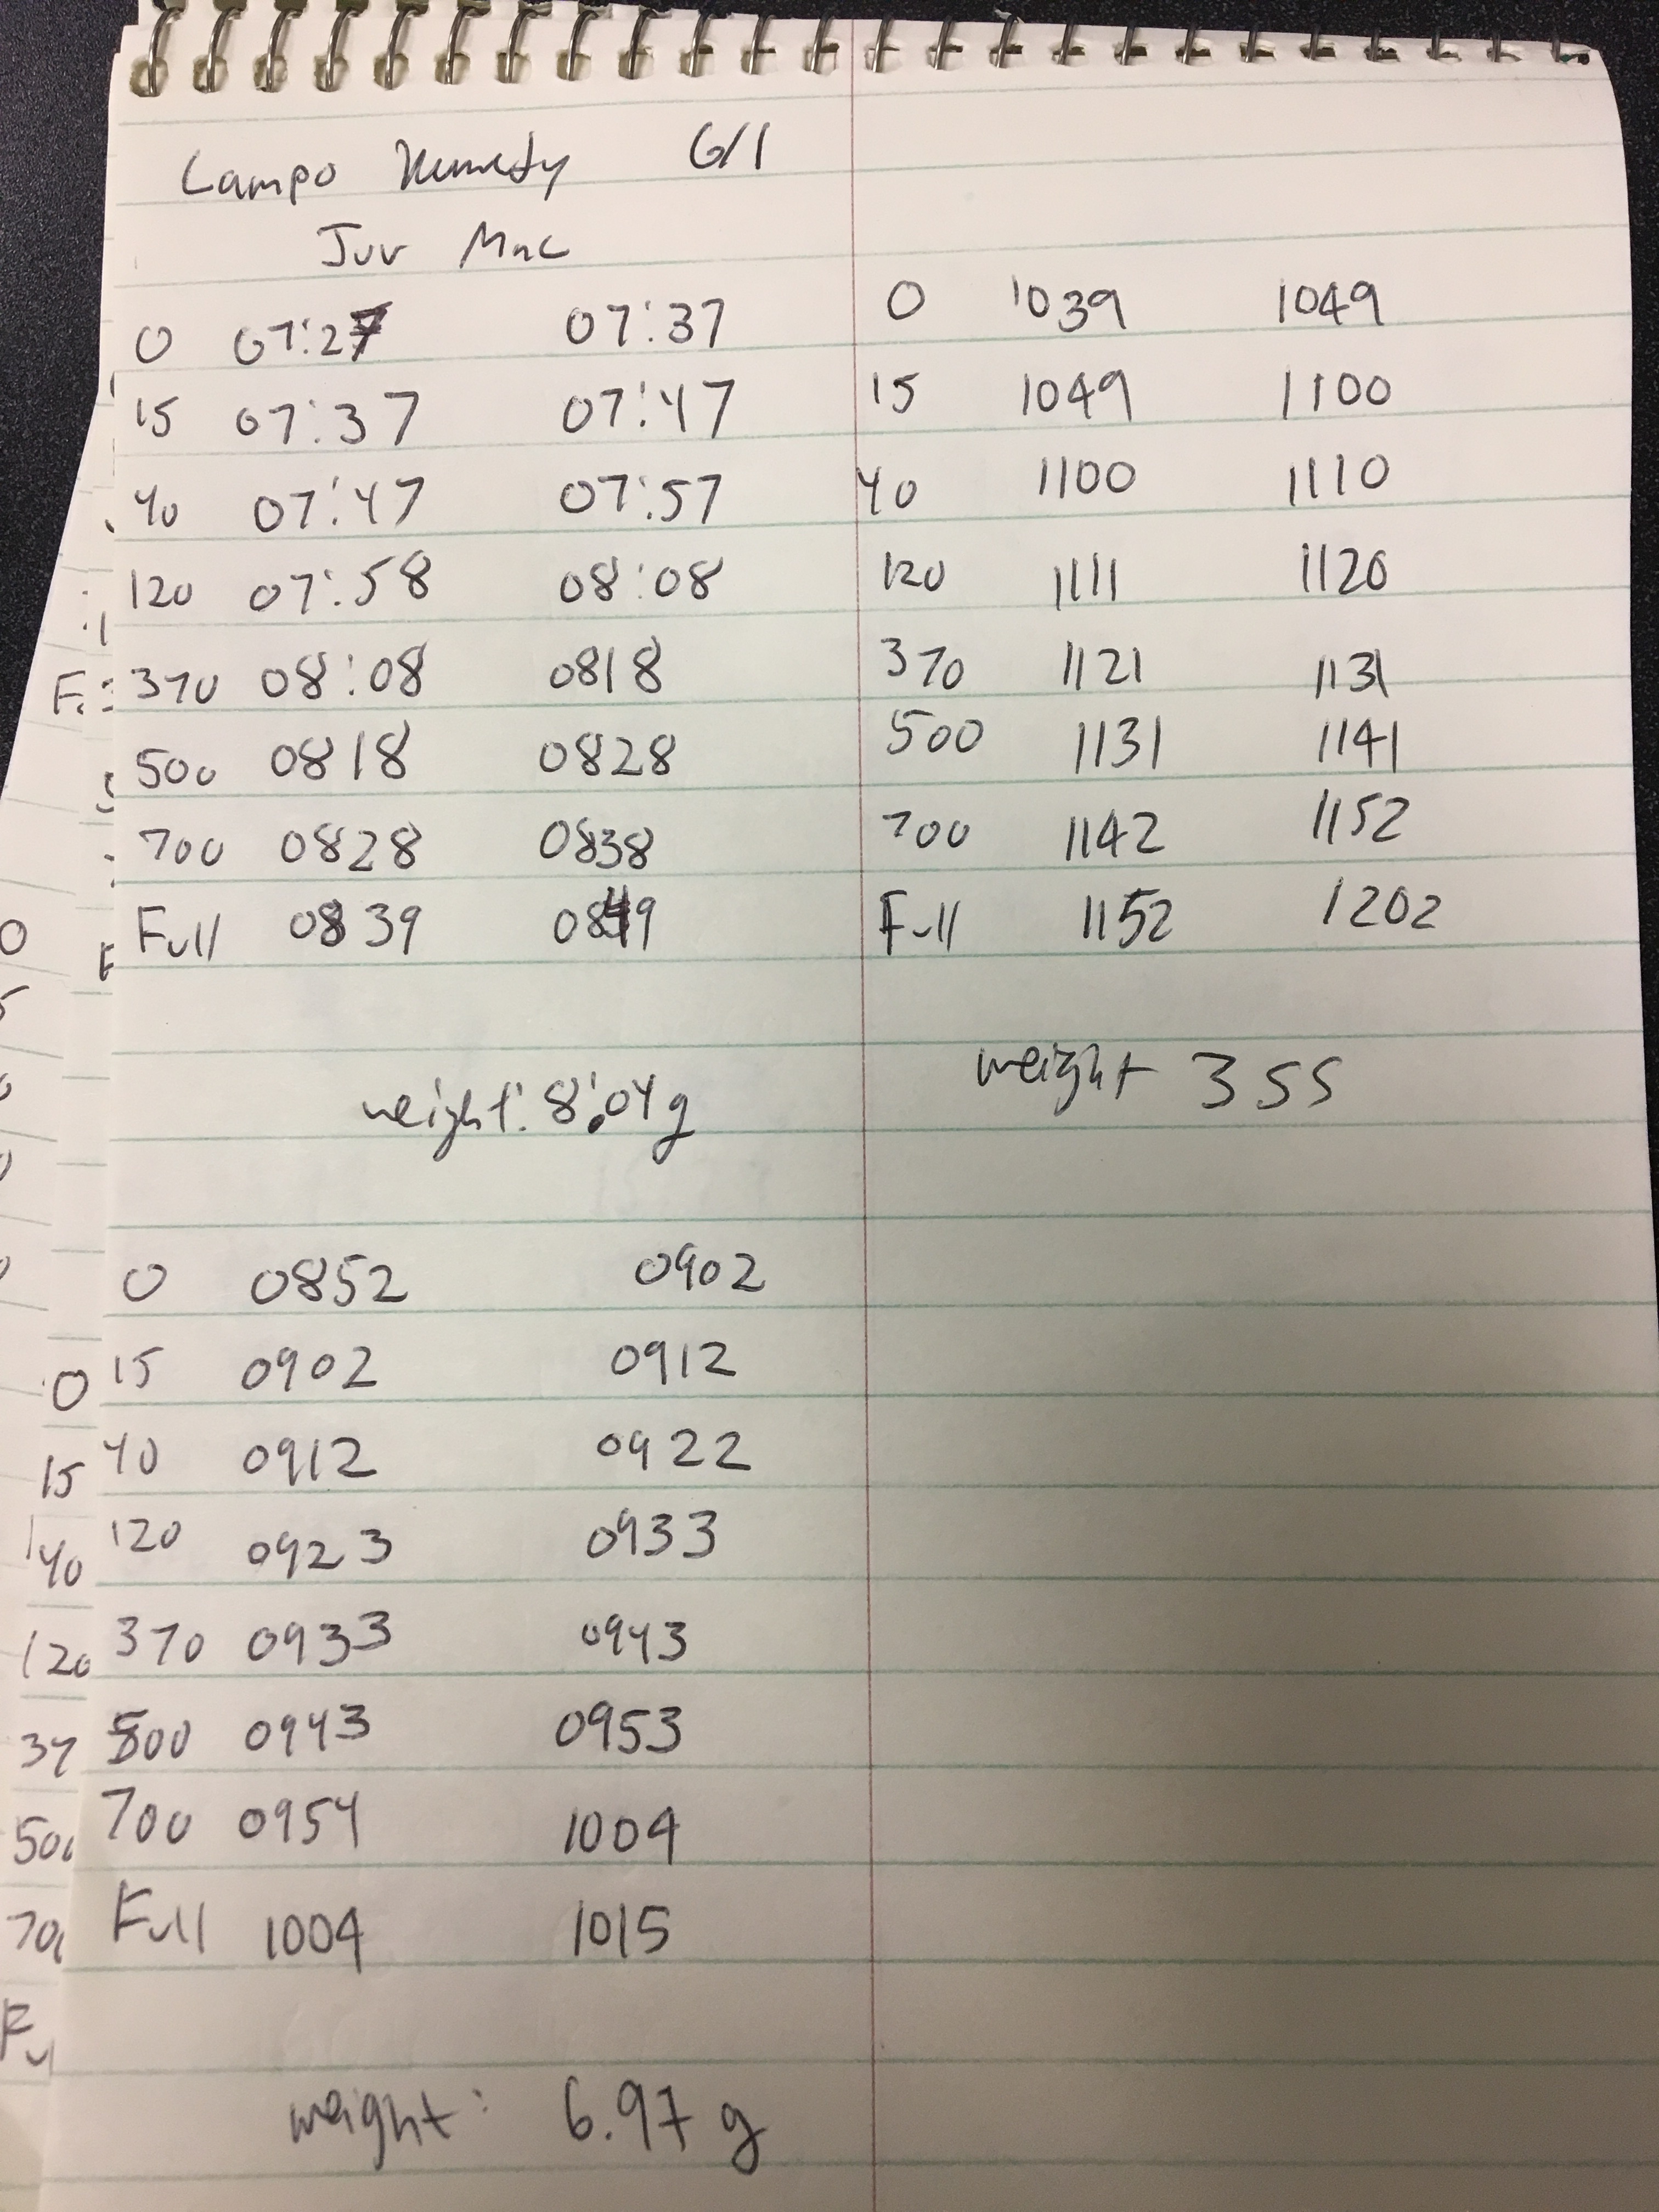 Campo Kennedy 6/1
Juv Mnc
0 07:27 07:37
15 07:37 07:47
40 07:47 07:57
120 07:58 08:08
370 08:08 0818
500 0818 0828
700 0828 0838
Full 0839 0849
weight: 8.04g
0 0852 0902
15 0902 0912
40 0912 0922
120 0923 0933
370 0933 0943
500 0943 0953
700 0954 1004
Full 1004 1015
weight: 6.97 g
0 1039 1049
15 1049 1100
40 1100 1110
120 1111 1120
370 1121 1131
500 1131 1141
700 1142 1152
Full 1152 1202
weight 355
0
15
40
120
37
500
700
Ful